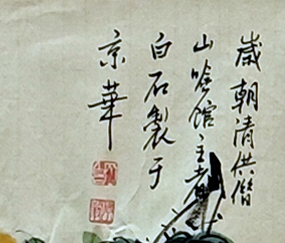 歲朝清供偕
山吟館主者
白石製于
京華